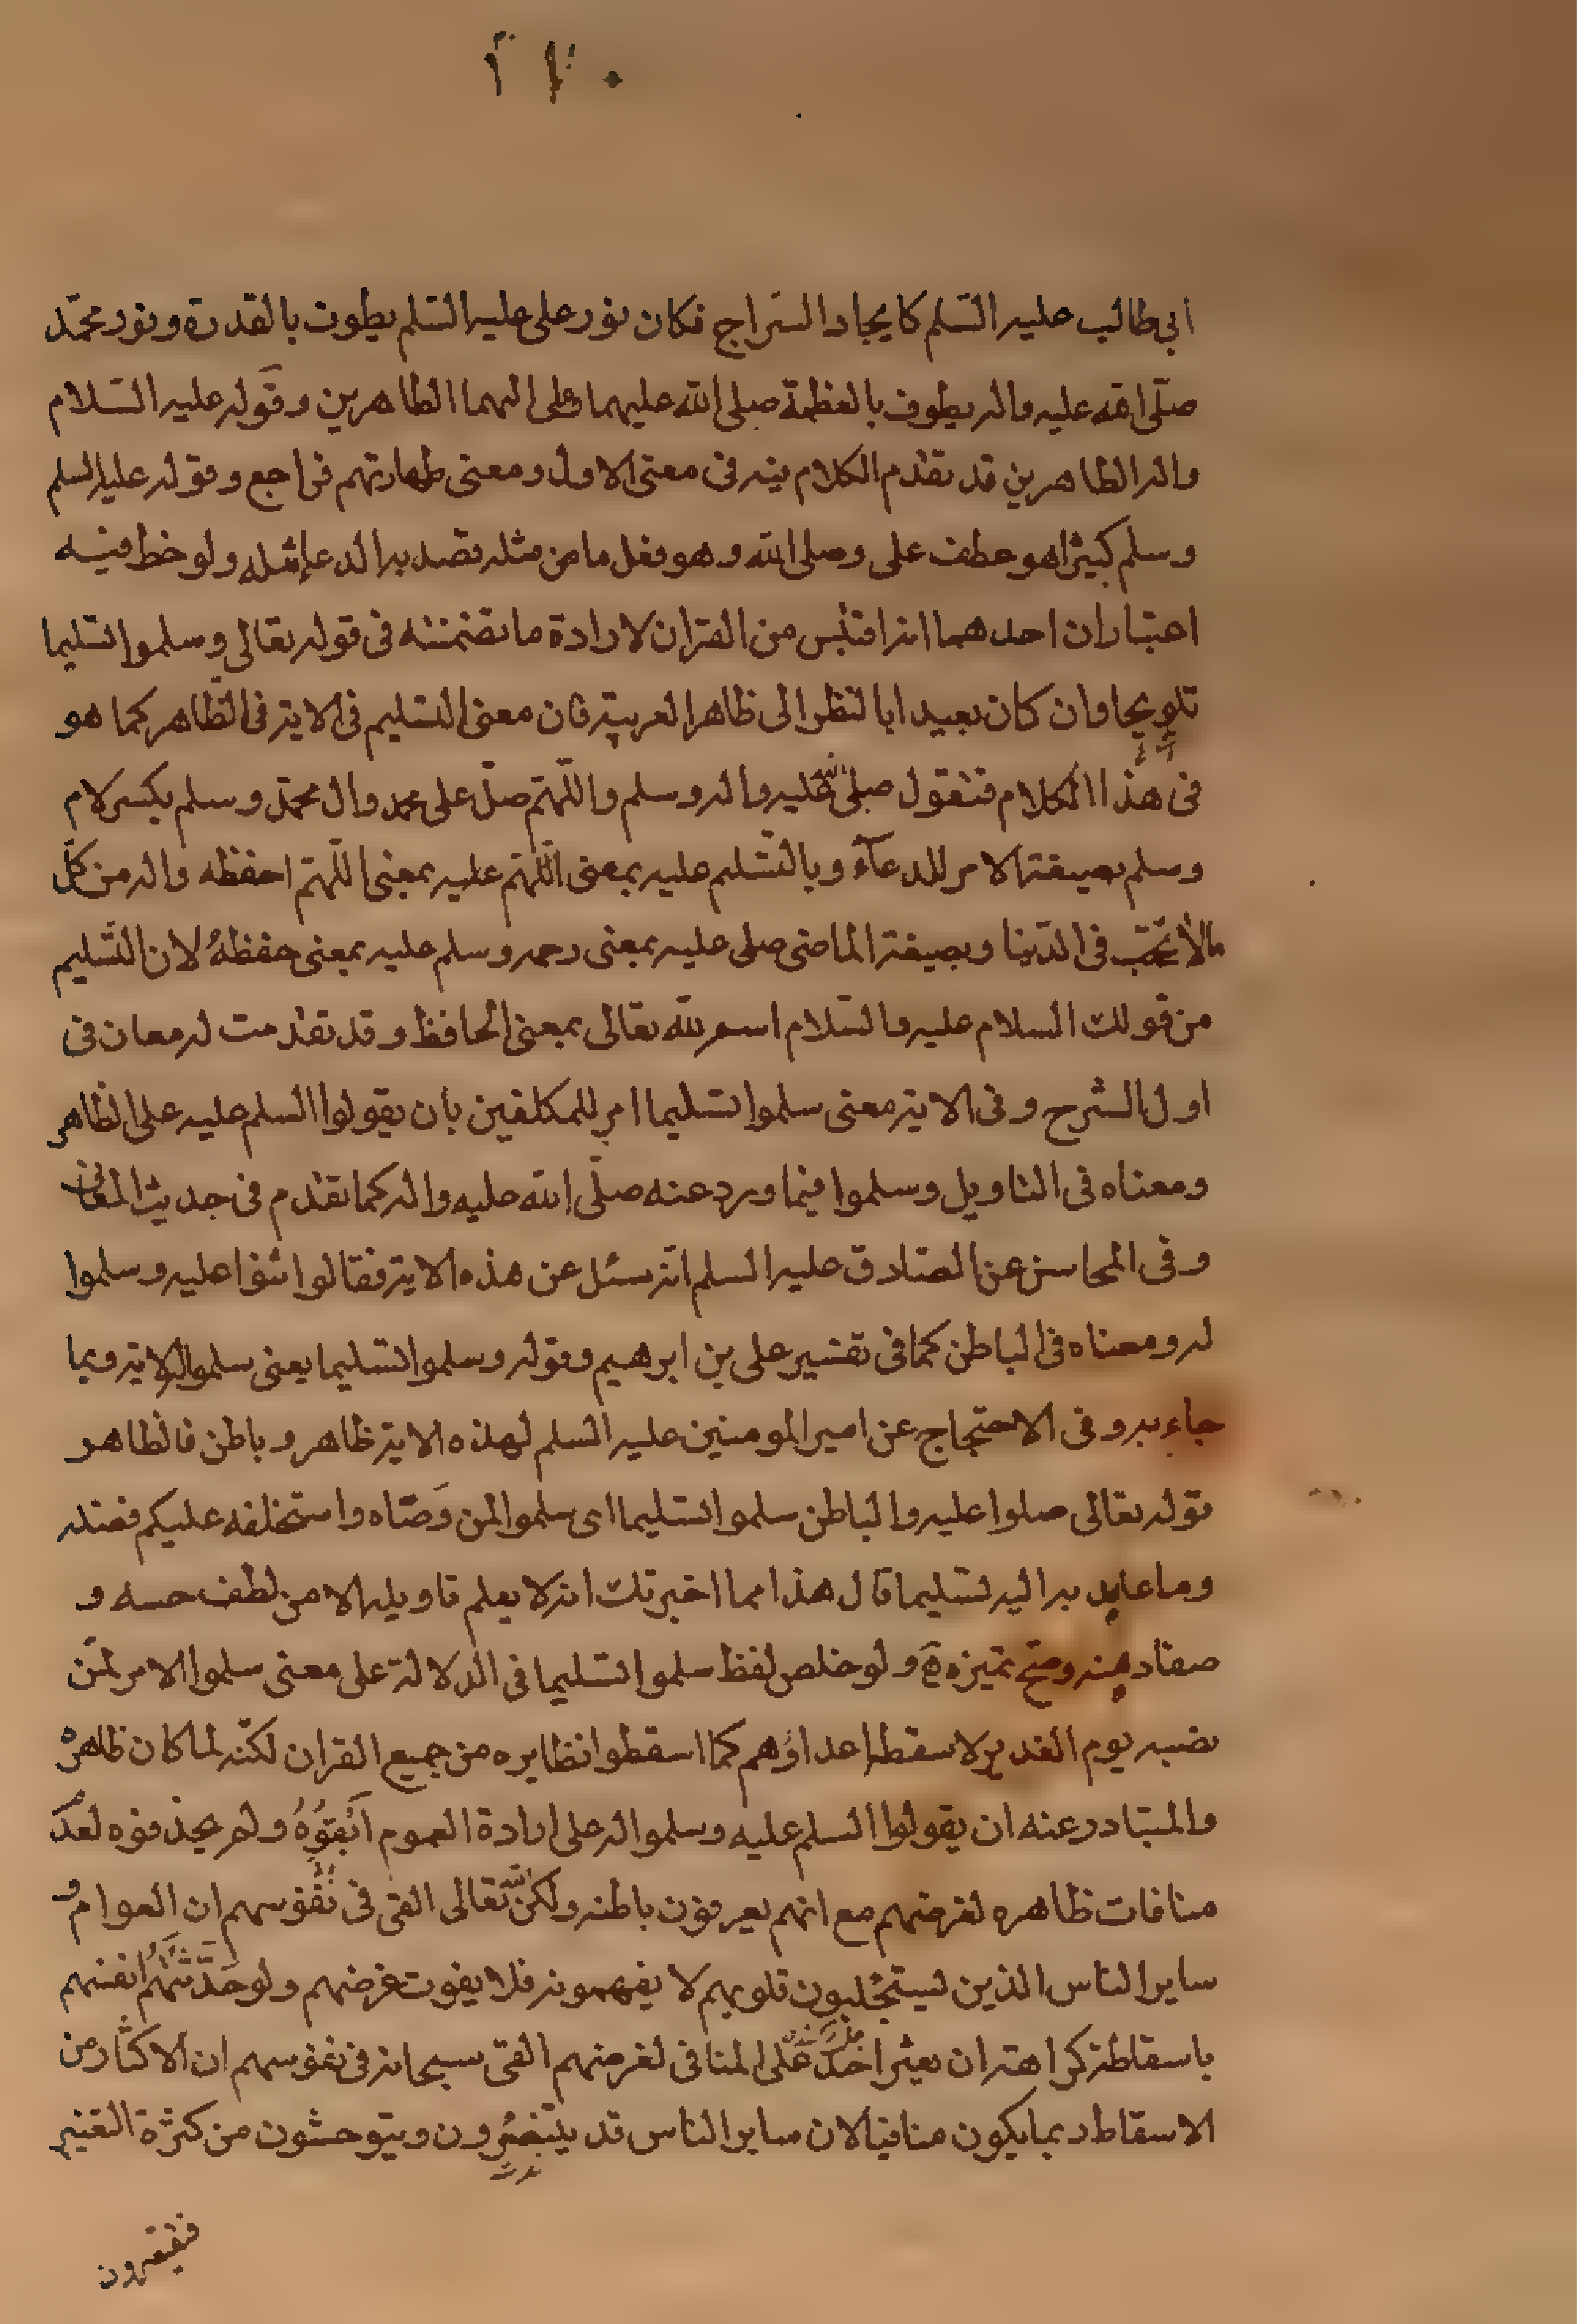 ابى طالب عليه السّلم كايجاد السّراج فكان نور على عليه السّلم يطوف بالقدرة ونور محمّد
صلّى الله عليه واله يطوف بالعظمة صلى الله عليهما وعلى الهما الطاهرين وقوله عليه السّلام
واله الطاهرين قد تقدّم الكلام فيه فى معنى الاول ومعنى طهارتهم فراجع وقوله عليه السلم
وسلم كثيرا هو عطف على وصلى الله وهو فعل ماض مثله قصد به الدعاء مثله ولوحظ فيه
اعتباران احدهما انه اقتبس من القران لارادة ما تضمنته فى قوله تعالى وسلموا تسليما
تلويحا وان كان بعيدا بالنظر الى ظاهر العربية فان معنى التسليم فى الاية فى الظّاهر كما هو
فى هذا الكلام فتقول صلى الله عليه واله وسلم واللّهمّ صلّ على محمد وال محمّد وسلم بكسر لام
وسلم بصيغة الامر للدعآء وبالتّسليم عليه بمعنى اللّهمّ عليه بمعنى اللّهمّ احفظه واله من كلّ
مالا تحبّ فى الدّنيا وبصيغة الماضى صلى عليه بمعنى رحمه وسلم عليه بمعنى حفظهُ لان التّسليم
من قولك السلام عليه والسّلام اسم لله تعالى بمعنى الحافظ وقد تقدمت له معان فى
اول الشرح وفى الاية معنى سلموا تسليما امر للمكلفين بان يقولوا السلم عليه على الظاهر
ومعناه فى التاويل وسلموا فيما ورد عنه صلّى الله عليه واله كما تقدّم فى حديث المعانى
وفى المحاسن عن الصّادق عليه السلم انّه سئل عن هذه الاية فقال اثنوا عليه وسلموا
له ومعناه فى الباطن كما فى تفسير على بن ابرهيم وقوله وسلموا تسليما يعنى سلموا بالولاية وبما
جاء به وفى الاحتجاج عن امير المومنين عليه السلم لهذه الاية ظاهر وباطن فالظاهر
قوله تعالى صلوا عليه والباطن سلموا تسليما اى سلموا لمن وَصّاه واستخلفه عليكم فضله
وما عهد به اليه تسليما قال هذا مما اخبرتك انه لا يعلم تاويله الا من لطف حسه و
صفا ذهنه وصحّ تميزه ولو خلص لفظ سلموا تسليما فى الدلالة على معنى سلموا الامر لمَن
نصبه يوم الغدير لاسقطه اعداؤهم كما اسقطوا نظايره من جميع القران لكنّه لما كان ظاهرهُ
والمتبادر عنه ان يقولوا السلم عليه وسلموا له على ارادة العموم اَبْقَوْهُ ولم يحذفوه لعدم
منافات ظاهره لغرضهم مع انهم يعرفون باطنه ولكنّ الله تعالى القى فى نُفُوسهم ان العوام و
ساير الناس الذين ليستجلبون قلوبهم لا يفهمونه فلا يفوت غرضهم ولو حَدَّثَتْهُم انفسهم
باسقاطه كراهة ان يعثر احَدٌ عَلى المنافى لغرضهم القى سبحانه فى نفوسهم ان الاكثار من
الاسقاط ربما يكون منافيا لان ساير الناس قد يتنفّرون ويتوحشون من كثرة التغيير